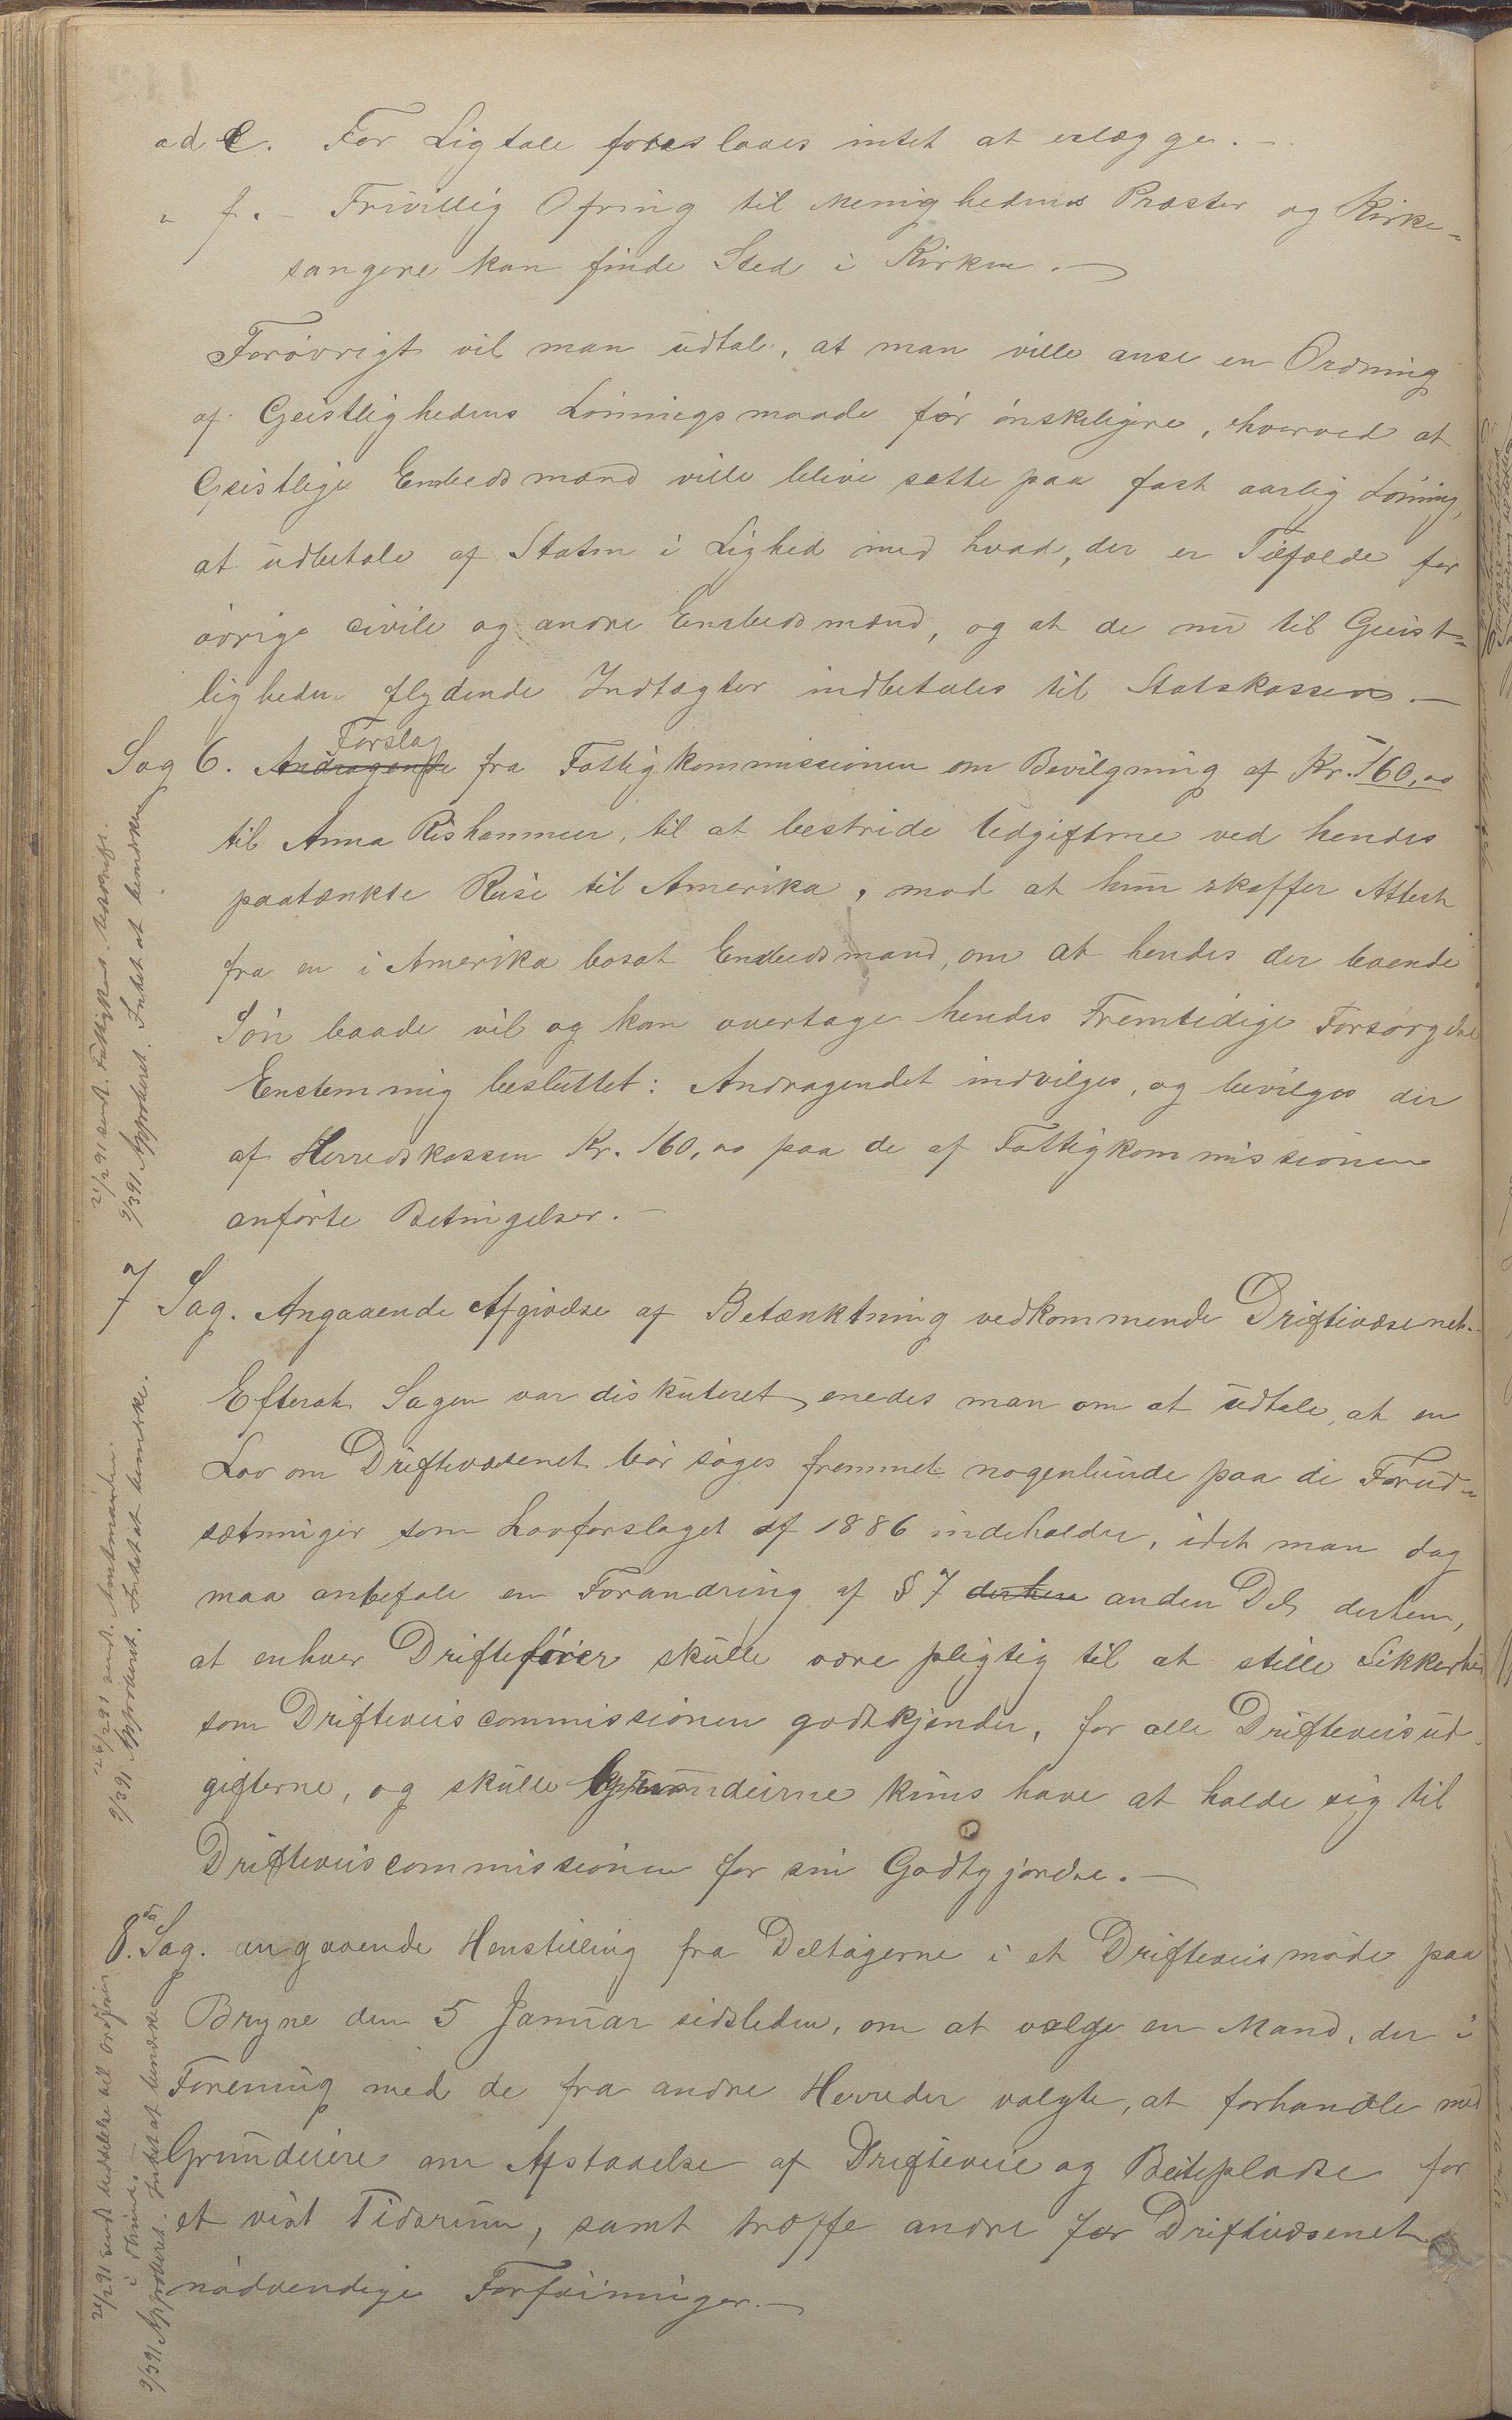 ad e. For Ligtale foreslaaes intet at erlægge. —
„ f. — Frivillig Ofring til Menighedens Præster og Kirke-
sangere kan finde Sted i Kirken. —
Forøvrigt vil man udtale, at man ville anse en Ordning
af Geistlighedens Lønningsmaade før ønskeligere, hvorved at
Geistlige Embedsmænd ville blive satte paa fast aarlig Lønning,
at udbetale af Staten i Lighed med hvad, der er Tilfælde for
øvrige civile og andre Embedsmænd, og at de nu til Geist-
ligheden flydende Indtægter indbetales til Statskassen. —
Forslag
Sag 6. Andragende fra Fattigkommissionen om Bevilgning af Kr. 160,00
til Anna Rishammer, til at bestride Udgifterne ved hendes
paatænkte Reise til Amerika, mod at hun skaffer Attest
fra en i Amerika bosat Embedsmand, om at hendes der boende
Søn baade vil og kan overtage hendes Fremtidige Forsørgelse
Enstemmig besluttet: Andragendet indvilges, og bevilges der
af Herredskassen Kr. 160,00 paa de af Fattigkommissionen
anførte Betingelser. —
7 Sag. Angaaende Afgivelse af Betænktning vedkommende Driftevæsenet.
Efterat Sagen var diskuteret, enedes man om at udtale, at en
Lov om Driftevæsenet bør søges fremmet nogenlunde paa de Forud-
sætninger som Lovforslaget af 1886 indeholder, idet man dog
maa anbefale en Forandring af § 7 derhen anden Del derhen,
at enhver Driftefører skulle være pligtig til at stille Sikkerhed
som Drifteveiscommissionen godkjender, for alle Drifteveisud-
gifterne, og skulle Grundeierne kuns have at holde sig til
Drifteveiscommissionen for sin Godtgjørelse. —
8.de Sag. angaaende Henstilling fra Deltagerne i et Drifteveismøde paa
Bryne den 5 Januar sidstleden, om at vælge en Mand, der i
Forening med de fra andre Herreder valgte, at forhandle med
Grundeiere om Afstaaelse af Drifteveie og Beitepladse for
et vist Tidsrum, samt træffe andre for Driftevæsenet
nødvendige Forføininger. —
21/2 91 sendt Fattigkom. Udskrift.
9/3 91 Approberet. Intet at bemærke
26/2 91 sendt Amtmanden.
9/3 91 Approberet. Intet at bemærke.
21/2 91 sendt Meddelelse til Ordfører
i
9/3 91 Approberet. Intet at bemærke